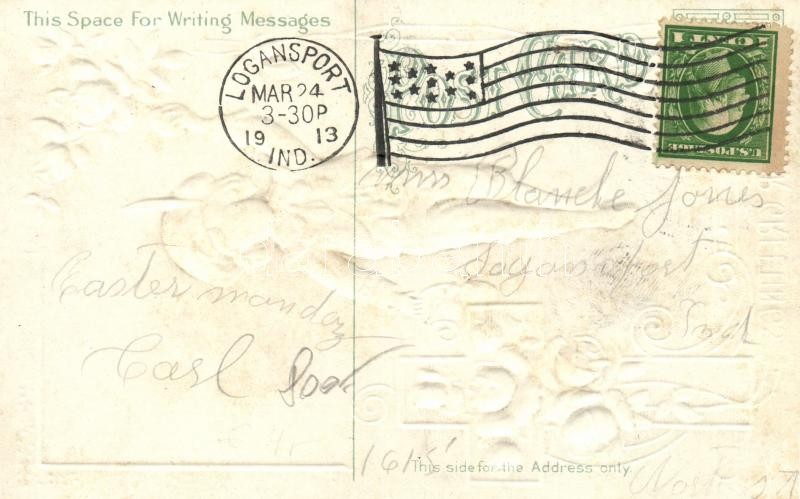 This Space For Writing Messages
LOGANSPORT
MAR 24
3-30P
1913
IND.
Post Card
1 CENT 1
U.S. POSTAGE
Miss Blanche Jones
Logansport
Ind
Easter monday
Carl
1615
This side for the Address only.
GREETING